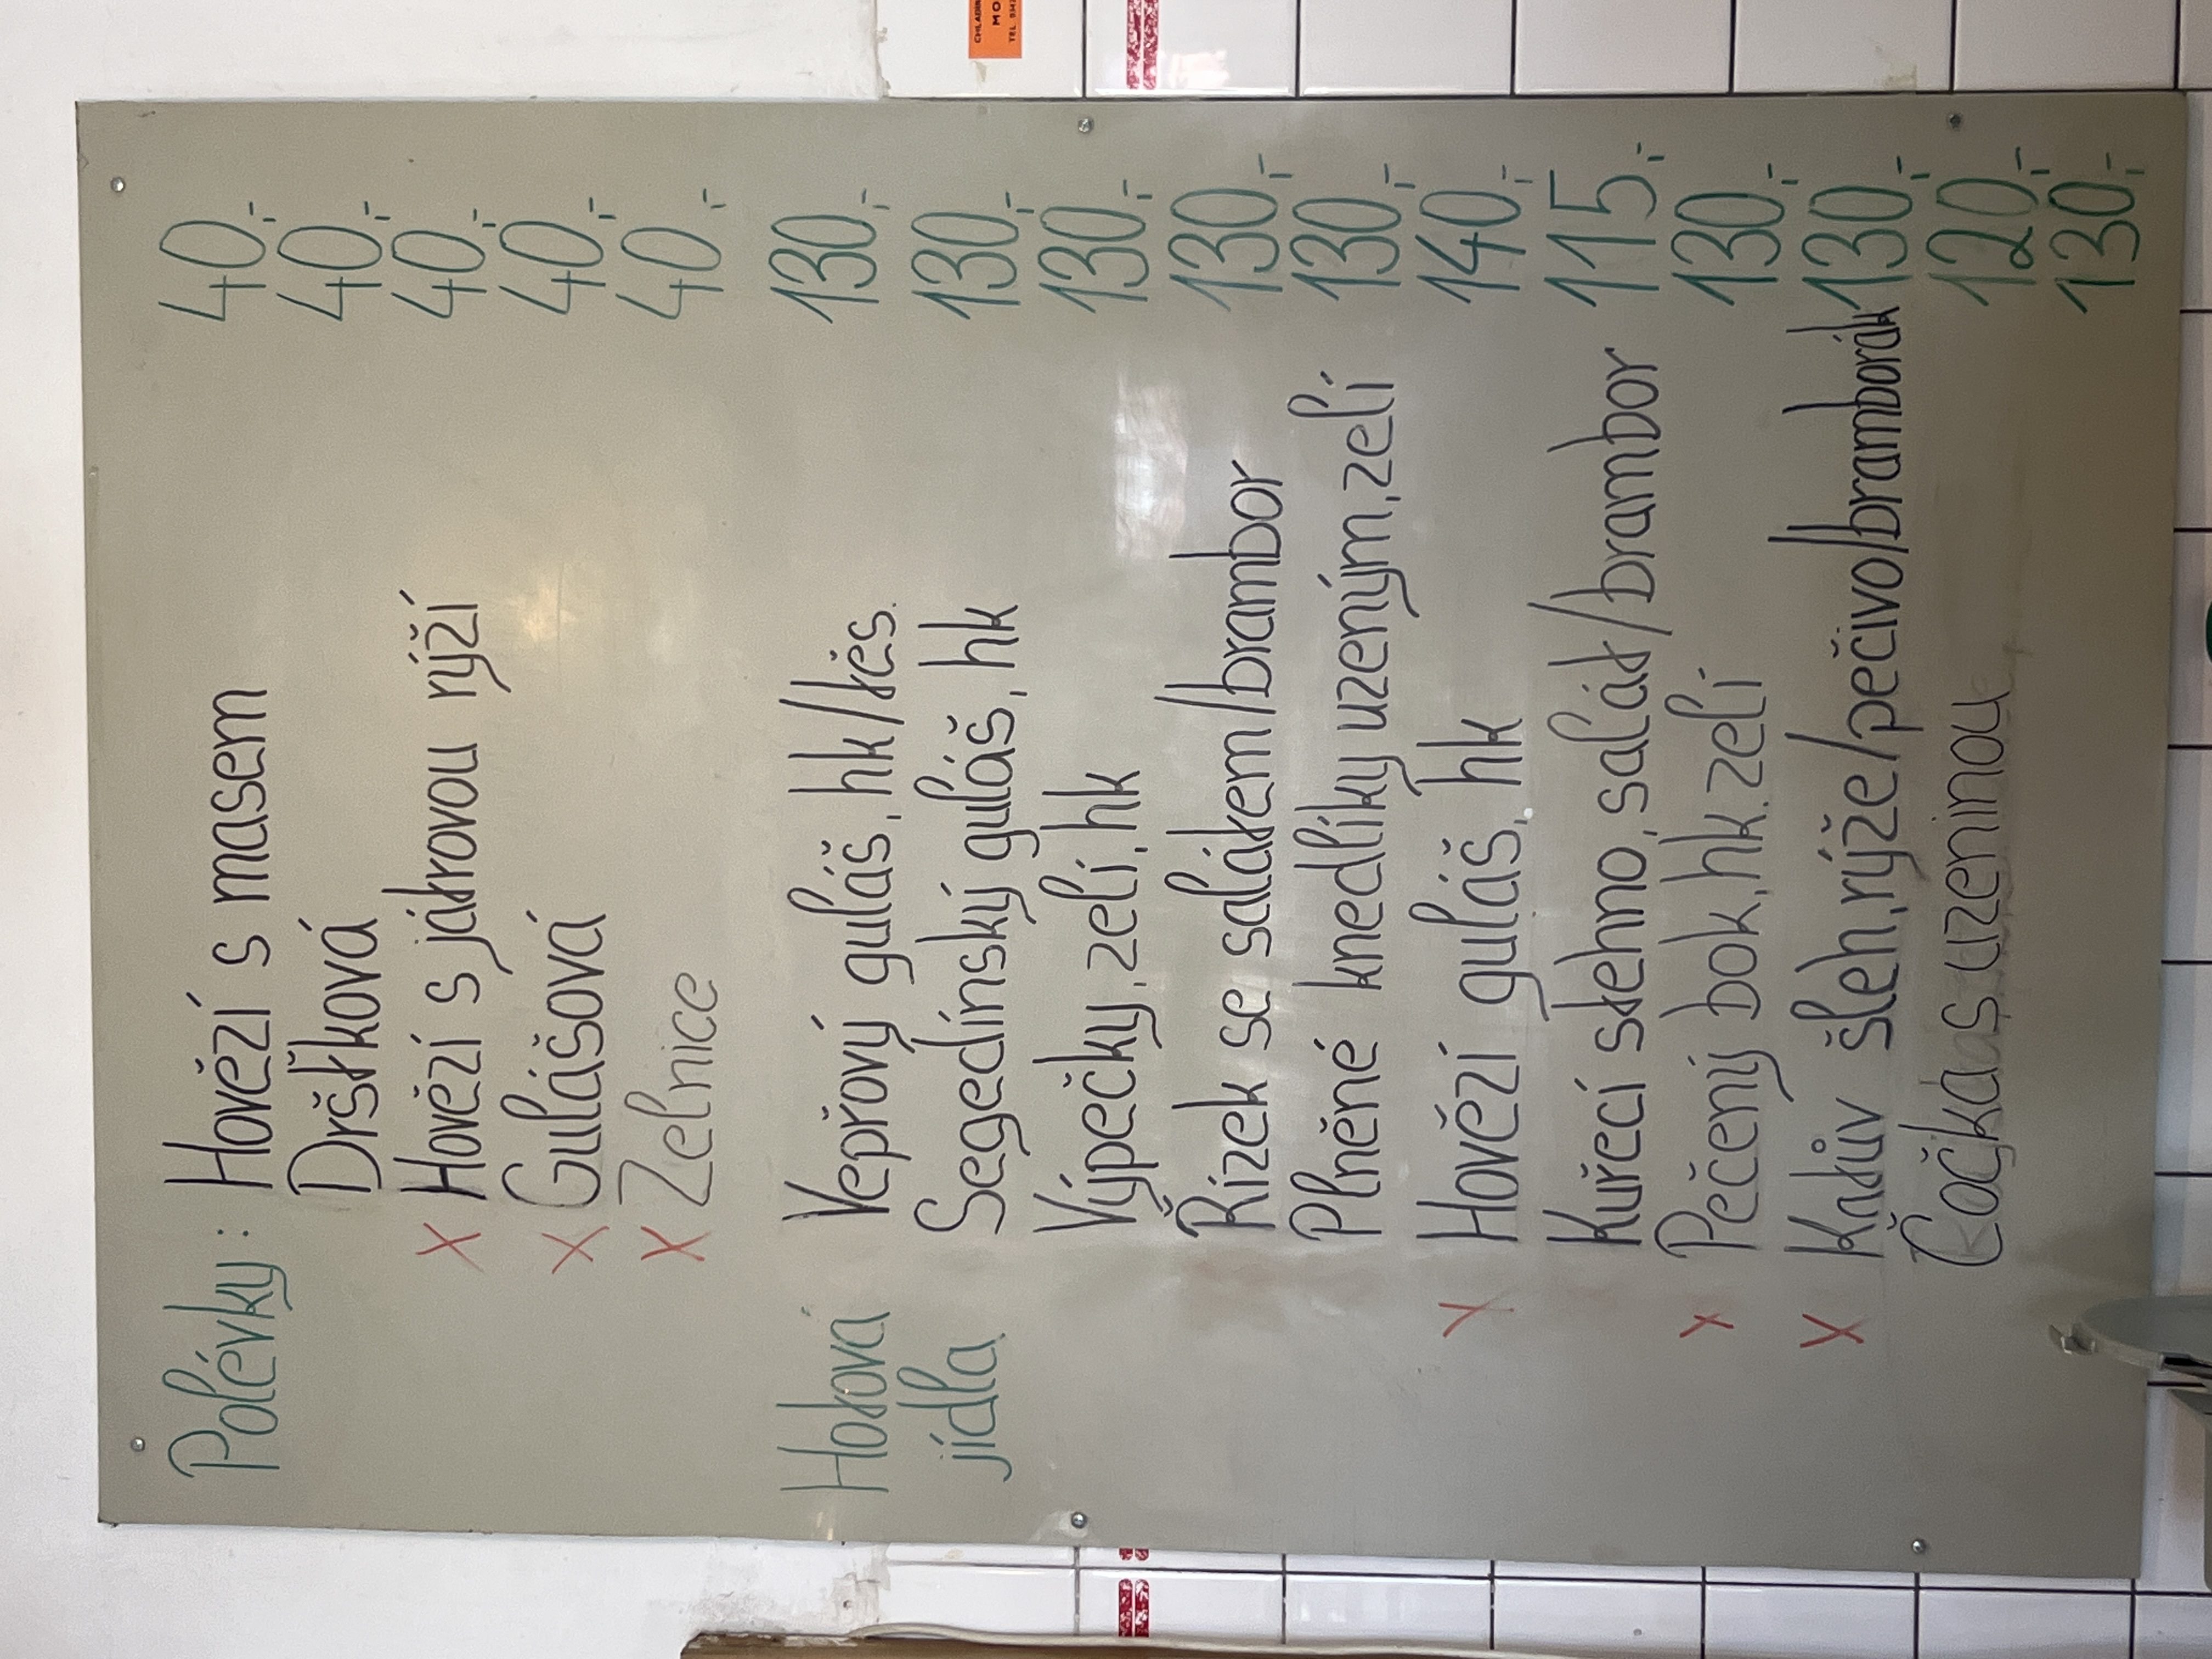 Polévky: Hovězí s masem 40.-
Dršťková 40.-
x Hovězí s játrovou rýží 40.-
x Gulášová 40.-
x Zelnice 40.-
Hotová Vepřový guláš, hk/těs. 130.-
jídla Segedínský guláš, hk 130.-
Výpečky, zelí, hk 130.-
Řízek se salátem/brambor 130.-
Plněné knedlíky uzeným, zelí 130.-
x Hovězí guláš, hk 140.-
Kuřecí stehno, salát/brambor 115.-
x Pečený bok, hk. zelí 130.-
x šleh, rýže/pečivo/bramborák 130.-
Čočka s uzeninou 120.-
130.-
MO
TEL.